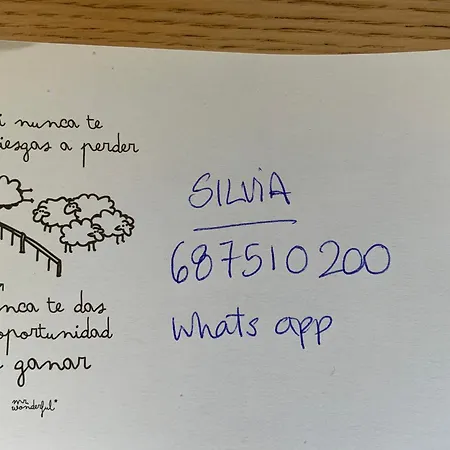 i nunca te
iesgas a perder
nca te das
oportunidad
ganar
mr
wonderful*
SILViA
687510200
whats app